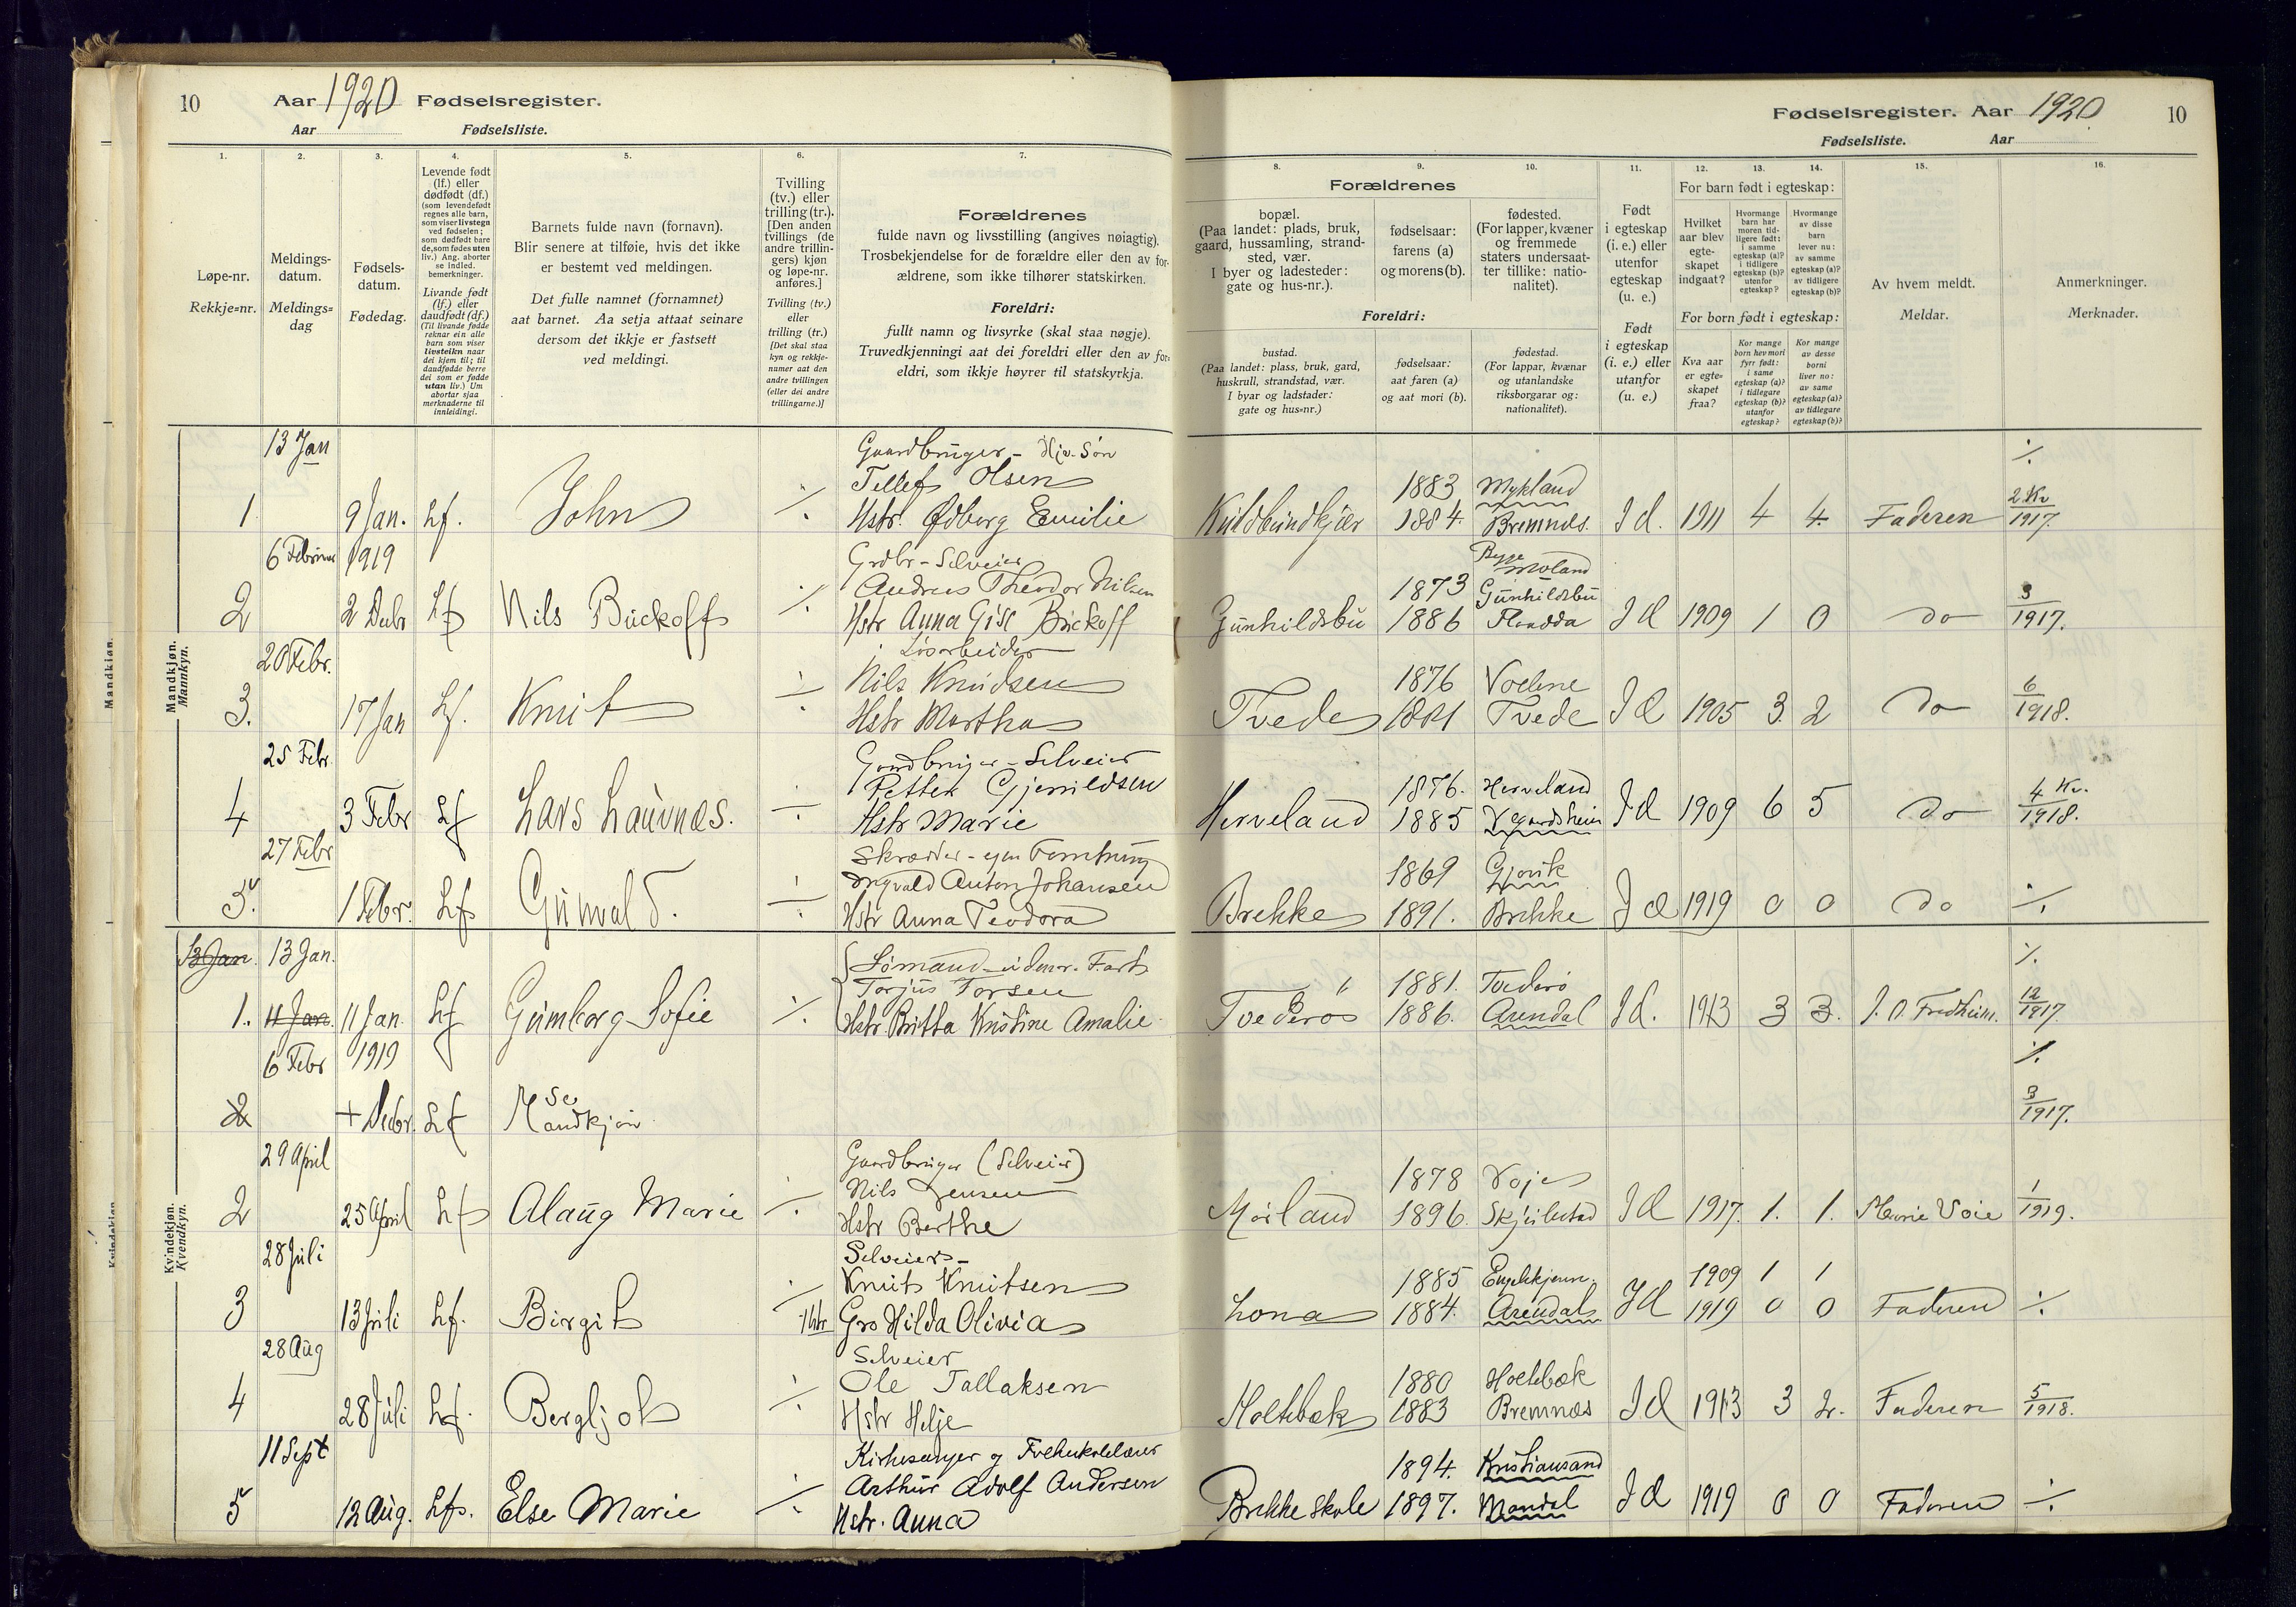 10 Aar 1920 Fødselsregister.
Aar Fødselsliste.
Fødselsregister. Aar 1920 10
Fødselsliste. Aar
1. 2. 3. 4. 5. 6. 7.
Løpe-nr.
Rekkje-nr.
Meldings-
datum.
Meldings-
dag
Fødsels-
datum.
Fødedag.
Levende født
(lf.) eller
dødfødt (df.)
(som levendefødt
regnes alle barn,
som viser livstegn
ved fødselen;
som dødfødt bare
de, som fødes uten
liv.) Ang. aborter
se indled.
bemerkninger.
Livande født
(lf.) eller
daudfødt (df.)
(Til livande fødde
reknar ein alle
barn som viser
livsteikn naar
dei kjem til; til
daudfødde berre
dei som er fødde
utan liv.) Um
abortar sjaa
merknaderne til
innleidingi.
Barnets fulde navn (fornavn).
Blir senere at tilføie, hvis det ikke
er bestemt ved meldingen.
Det fulle namnet (fornamnet)
aat barnet. Aa setja attaat seinare
dersom det ikkje er fastsett
ved meldingi.
Tvilling
(tv.) eller
trilling (tr.).
[Den anden
tvillings (de
andre trillin-
gers) kjøn
og løpe-nr.
anføres.]
Tvilling (tv.)
eller
trilling (tr.)
[Det skal staa
kyn og rekkje-
numer aat den
andre tvillingen
(eller dei andre
trillingarne.)]
Forældrenes
fulde navn og livsstilling (angives nøiagtig).
Trosbekjendelse for de forældre eller den av for-
ældrene, som ikke tilhører statskirken.
Foreldri:
fullt namn og livsyrke (skal staa nøgje).
Truvedkjenningi aat dei foreldri eller den av for-
eldri, som ikkje høyrer til statskyrkja.
8. 9. 10. 11. 12. 13. 14. 15. 16.
Forældrenes
bopæl.
(Paa landet: plads, bruk,
gaard, hussamling, strand-
sted, vær.
I byer og ladesteder:
gate og hus-nr.).
fødselsaar:
farens (a)
og morens (b).
fødested.
(For lapper, kvæner
og fremmede
staters undersaat-
ter tillike: natio-
nalitet).
Foreldri:
bustad.
(Paa landet: plass, bruk, gard,
huskrull, strandstad, vær.
I byar og ladstader:
gate og hus-nr.)
fødselsaar:
aat faren (a)
og aat mori (b).
fødestad.
(For lappar, kvænar
og utanlandske
riksborgarar og:
nationalitet).
Født
i egteskap
(i. e.) eller
utenfor
egteskap
(u. e.)
Født
i egteskap
(i. e.) eller
utanfor
(u. e.)
For barn født i egteskap:
Hvilket
aar blev
egte-
skapet
indgaat?
Hvormange
barn har
moren tid-
ligere født:
i samme
egteskap (a)?
i tidligere
egteskap (b)?
utenfor
egteskap?
Hvormange
av disse
barn
lever nu:
av samme
egteskap (a)?
av tidligere
egteskap (b)?
For born født i egteskap:
Kva aar
er egte-
skapet
fraa?
Kor mange
born hev mori
fyrr født:
i same
egteskap (a)?
i tidlegare
egteskap (b)?
utanfor
egteskap?
Kor mange
av desse
borni
liver no:
av same
egteskap (a)?
av tidlegare
egteskap (b)?
Av hvem meldt.
Meldar.
Anmerkninger.
Merknader.
Mandkjøn.
Mannkyn.
13 Jan Gaardbruger -
Tellef Olsen 1883 Mykland
1 9 Jan. Lf. John Hstr. Ødborg Emilie 1884 Bremnes. I d. 1911 4 4. Faderen 2 Kv 1917.
6 Februar 1919 Grdbr - Selveier
Andreas Theodor Nilsen 1873 Gunhildsbu
2 2 Debr Lf Nils Buckoff Hstr Anna Gise Buckoff Gunhildsbu 1886 Flaadda I d 1909 1 0 do 3 1917.
20 Febr. Løsarbeider
Nils Knudsen 1876
3. 17 Jan Lf. Knut Hstr Martha Tvede Tvede I d 1905 3. 2 do 6 1918.
25 Febr. Gaardbruger - Selveier
Petter Gjeruldsen 1876. Herveland
4 3 Febr Lf Lars Laurnæs. Hstr Marie Herveland 1885 Vegaardsheim I d 1909 6 5 do 4 Kv. 1918.
27 Febr Skrædder - egen Forretning
Ingvald Anton Johansen 1869 Gjøvik
5. 1 Febr. Lf Gunvald. Hstr Anna Teodora Brekke 1891. Brekke I d 1919 0 0 do
Kvindekjøn.
Kvendkyn.
13 Jan. 13 Jan. Sømand - udenr. Fart
Torjus Torsen 1881. Tvederø
1. 11 Jan. 11 Jan. Lf Gunborg Sofie Hstr. Britta Kristine Amalie Tvederø 1886. Arendal I d. 1913 3 3. J. O. Fredheim. 12 1917.
6 Febr 1919
2 + Debr. Lf Se
Mandkjøn 3 1917.
29 April Gaardbruger (Selveier)
Nils Jensen 1878 Voje
2 25 April Lf Alaug Marie Hstr Berthe Mørland 1896. I d 1917. 1. 1. Marie Voie 1 1919.
28 Juli Selveier -
Knut Knutsen 1885 1909 1 1
3 13 Juli Lf. Birgit Hstr Gro Hilda Olivia Lona 1884. Arendal I d 1919 0 0 Faderen
28 Aug Selveier
Ole Tallaksen 1880 Holtebæk
4 28 Juli Lf. Bergljot Hstr Helje Holtebæk 1883 Bremnæs I d 1913 3 2. Faderen 5 1918.
11 Sept Kirkesanger og Folkeskolelærer
Arthur Adolf Andersen 1894. Kristiansand
5 12 Aug. Lf. Else Marie Hstr. Anna Brekke Skole 1897. Mandal I d 1919 0 0 Faderen